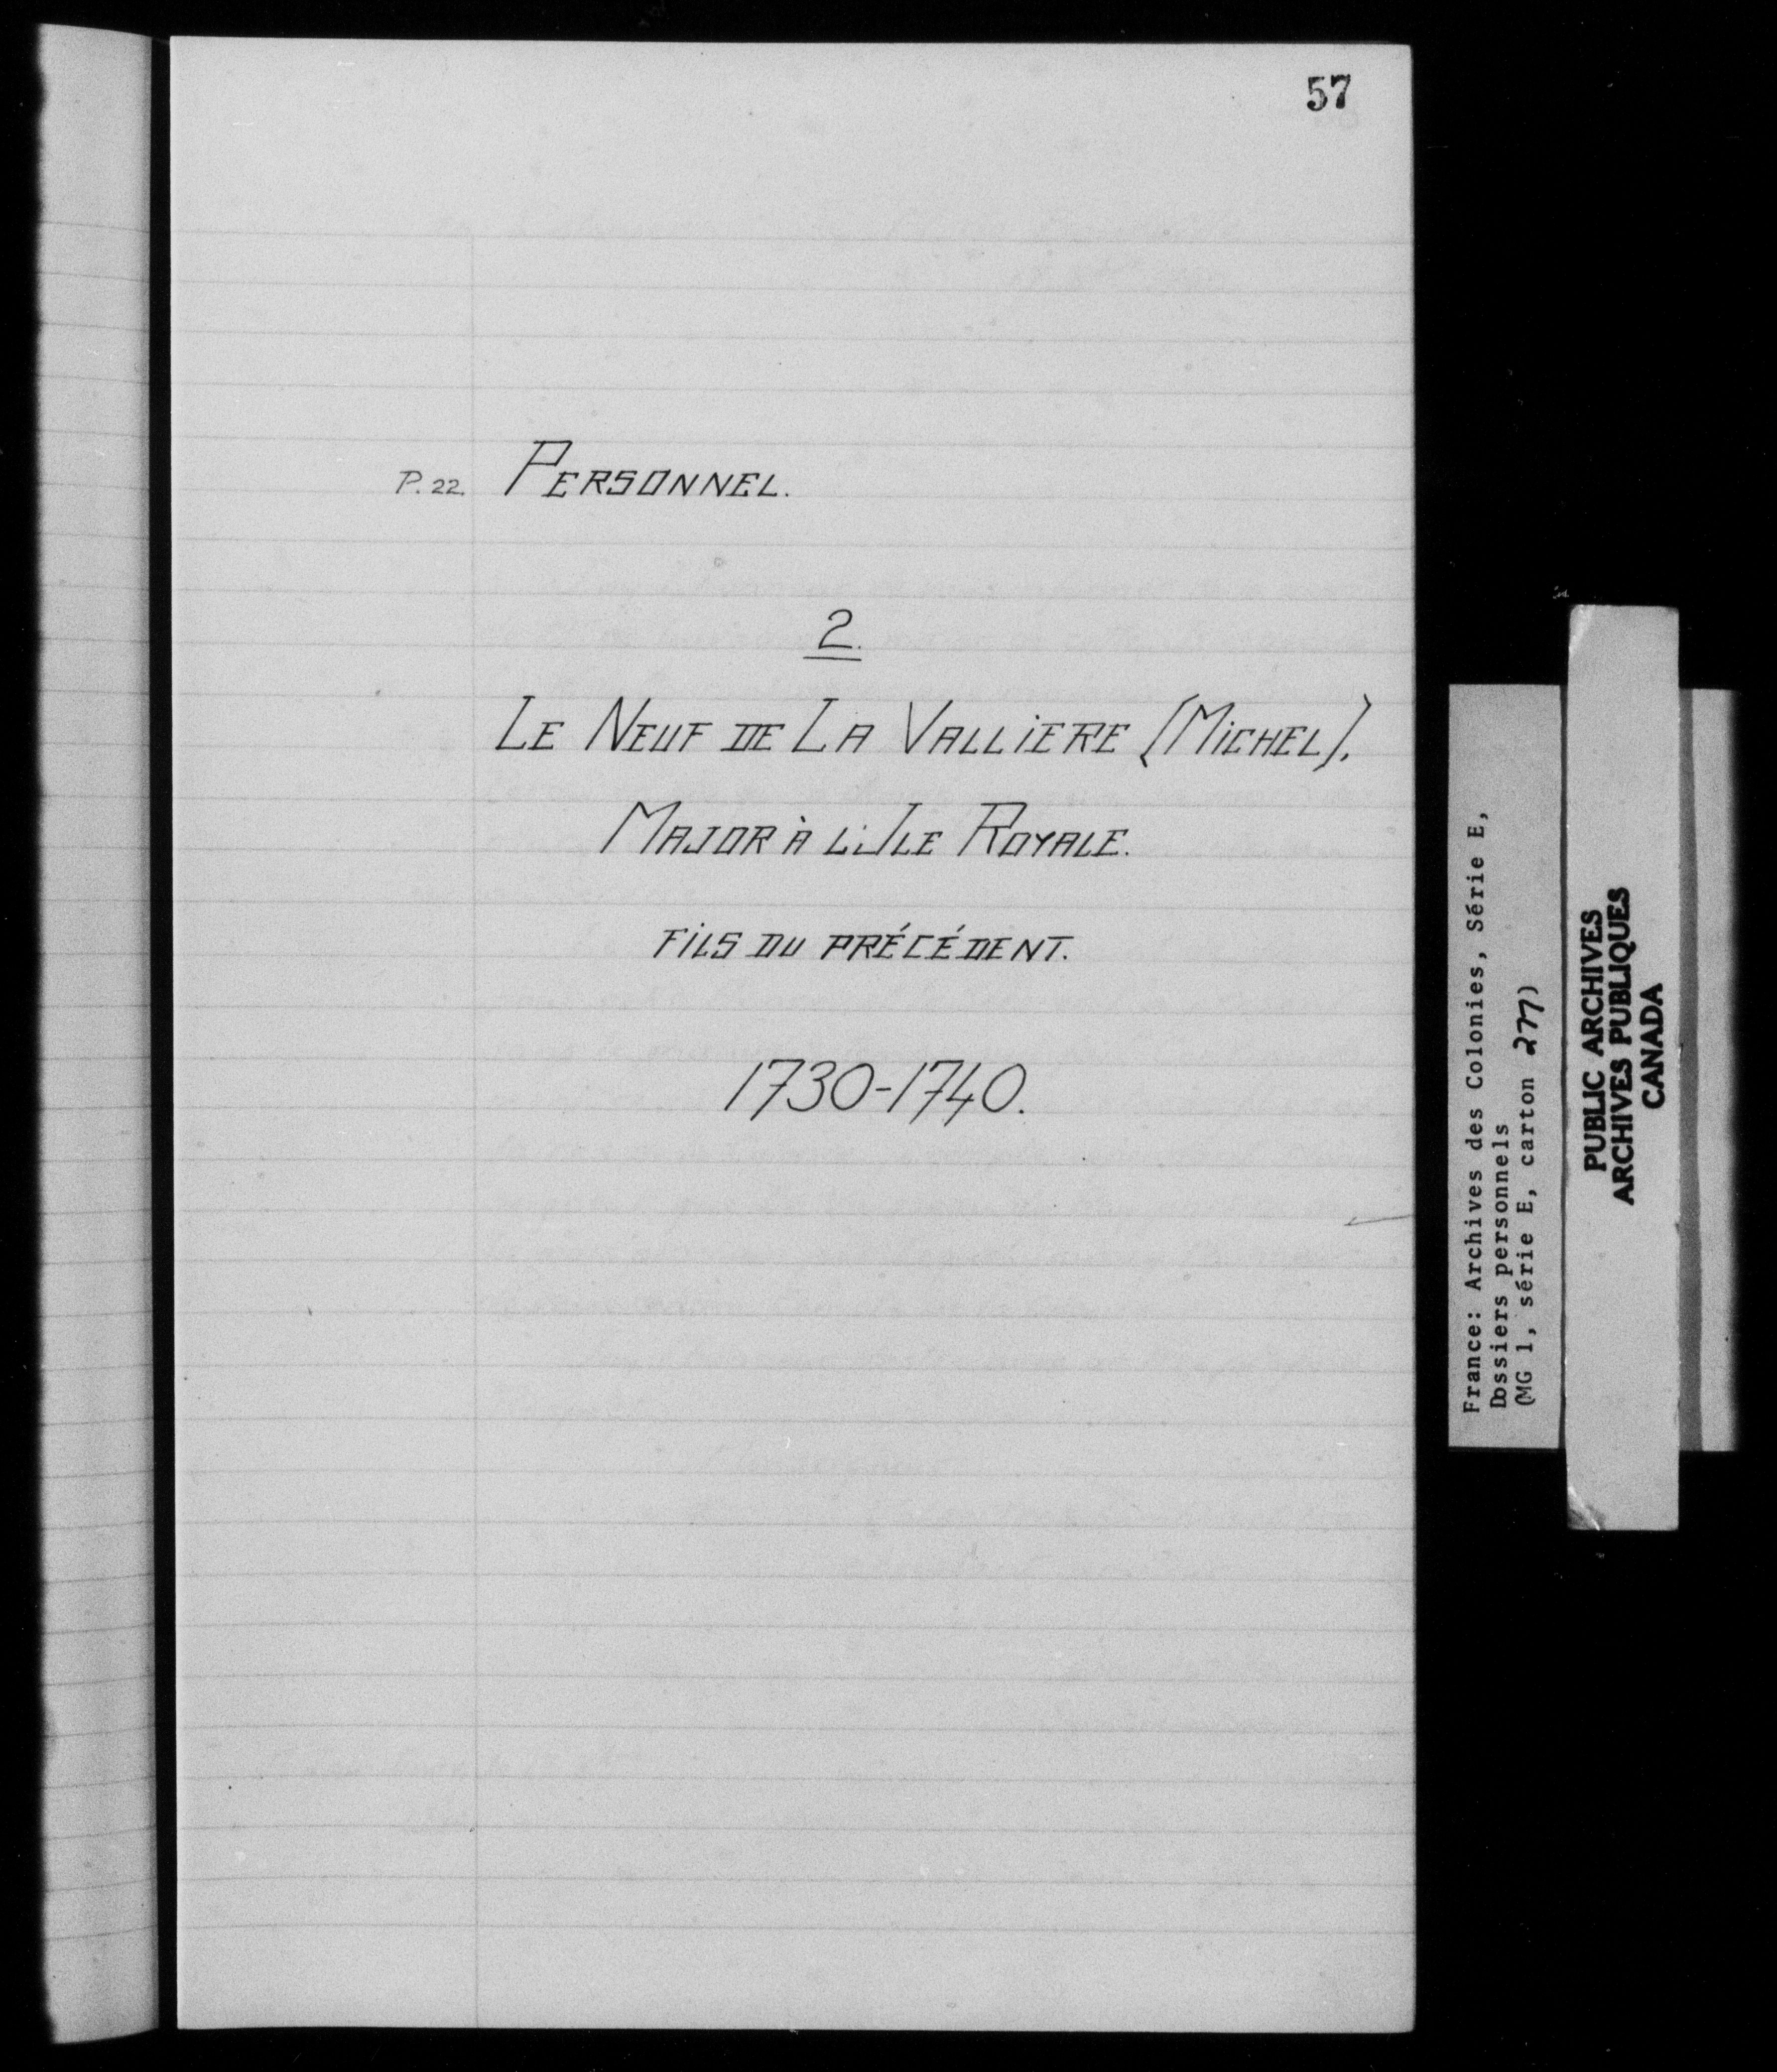 57
P. 22. PERSONNEL.
2.
LE NEUF DE LA VALLIERE (MICHEL).
MAJOR À L'ILE ROYALE.
FILS DU PRÉCÉDENT.
1730-1740.
France: Archives des Colonies, Série E,
Dossiers personnels
(MG 1, série E, carton 277)
PUBLIC ARCHIVES
ARCHIVES PUBLIQUES
CANADA